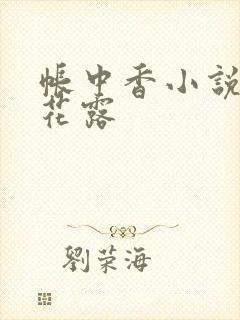 帳中香小說
花露
劉荣海